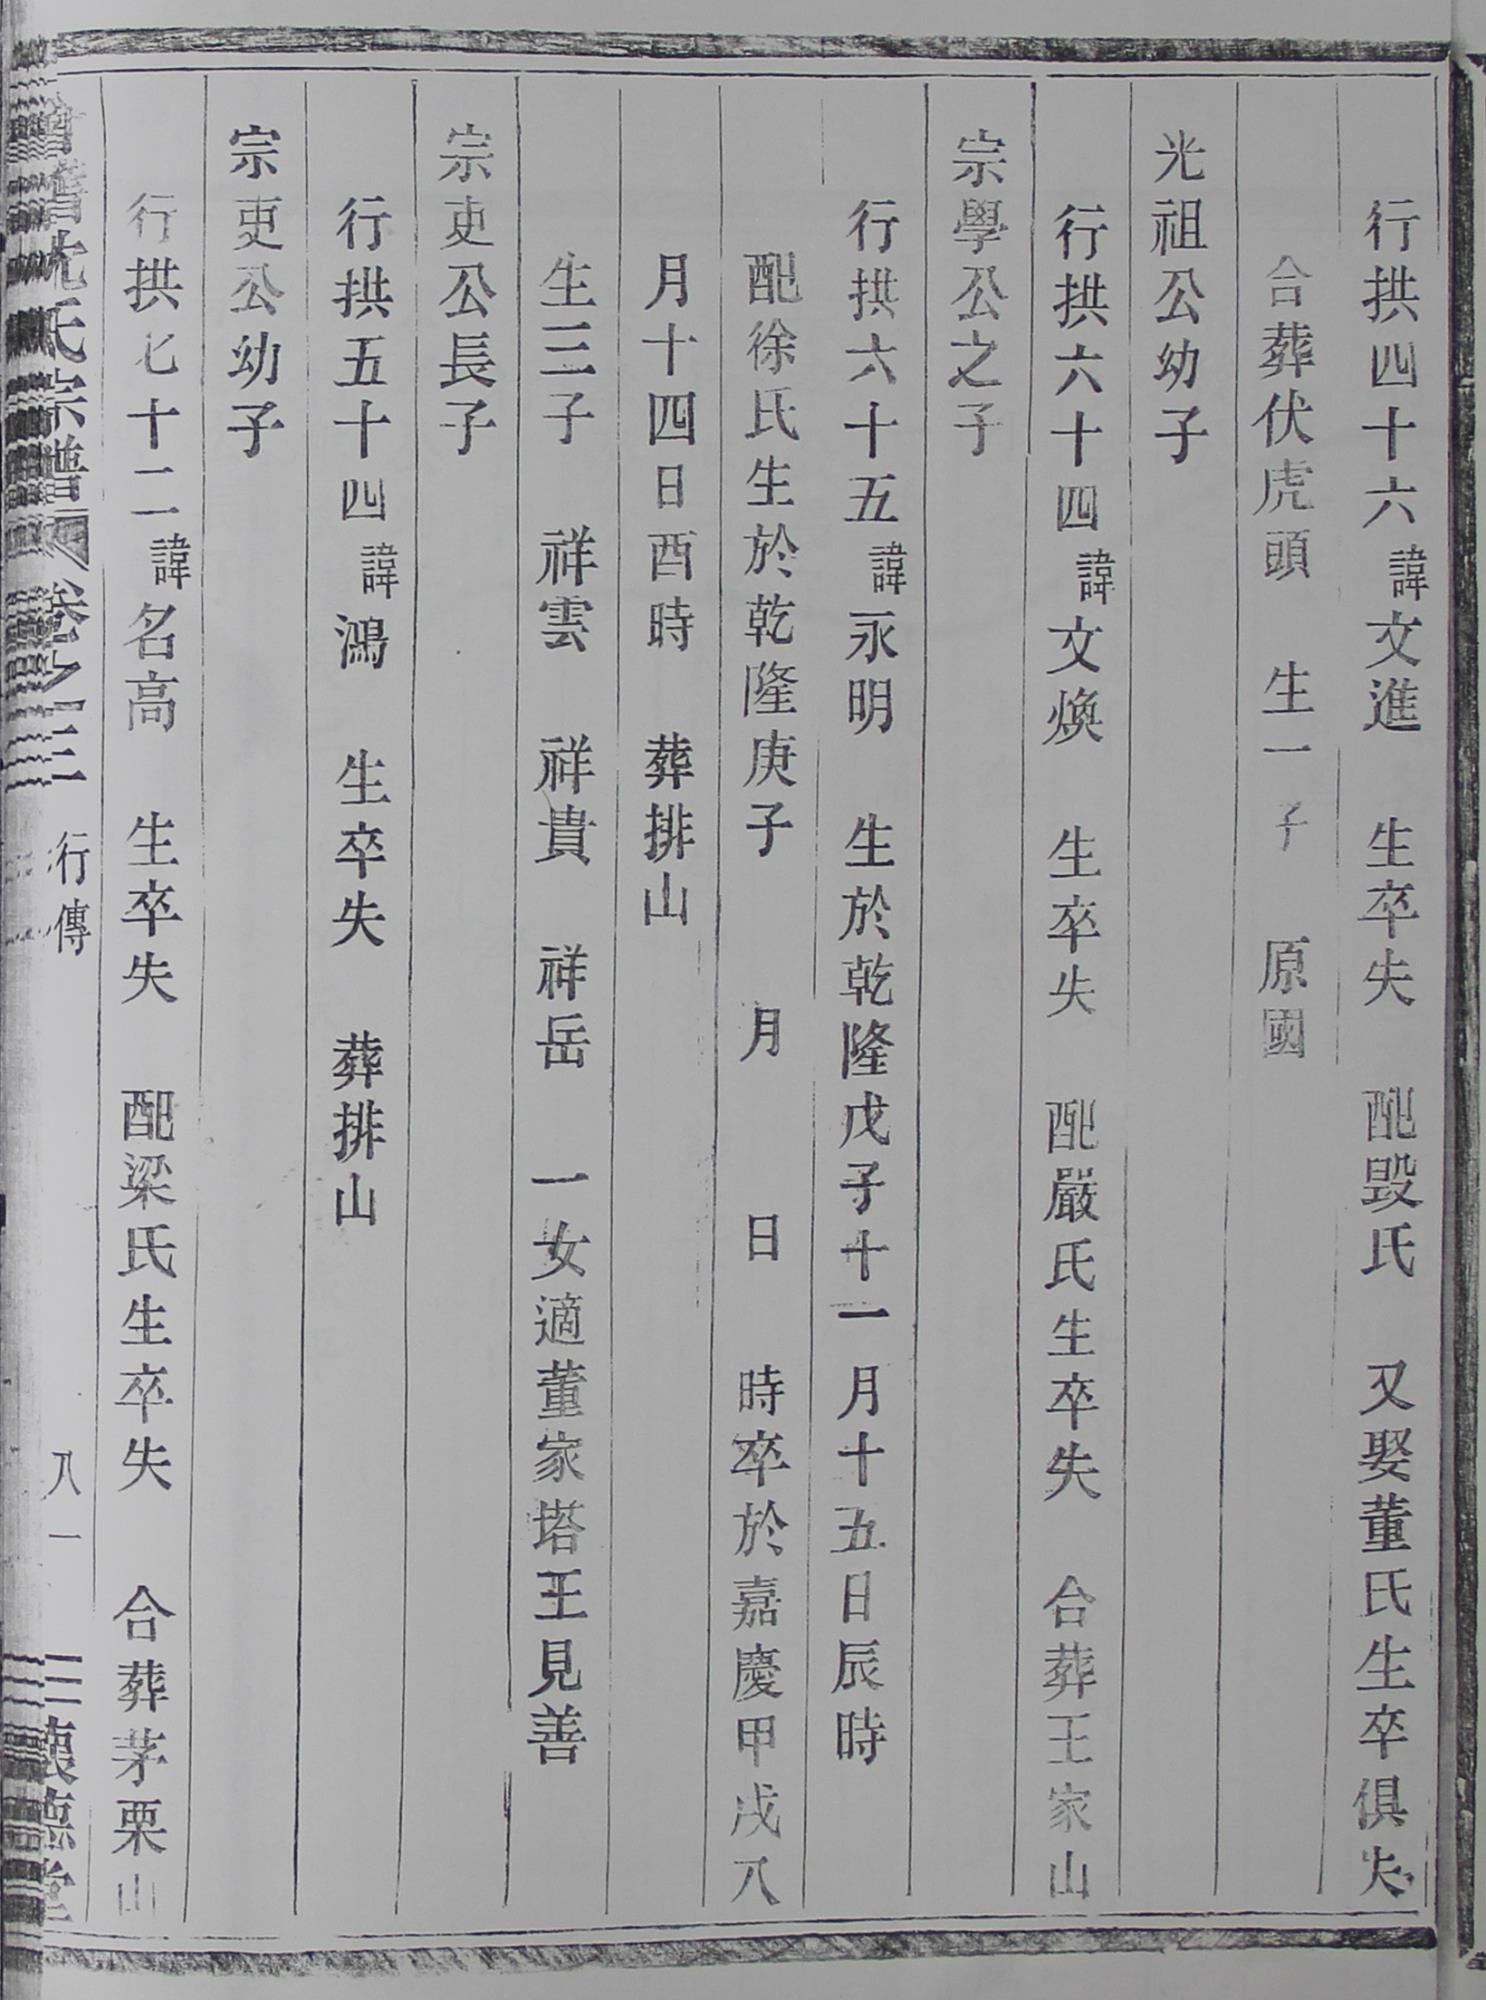 行拱四十六諱文進　生卒失　配毀氏　又娶董氏生卒俱失
合葬伏虎頭　生一子　原國
光祖公幼子
行拱六十四諱文煥　生卒失　配嚴氏生卒失　合葬王家山
宗學公之子
行拱六十五諱永明　生於乾隆戊子十一月十五日辰時
配徐氏生於乾隆庚子　月　日　時卒於嘉慶甲戌八
月十四日酉時　葬排山
生三子　祥雲　祥貴　祥岳　一女適董家塔王見善
宗吏公長子
行拱五十四諱鴻　生卒失　葬排山
宗吏公幼子
行拱七十二諱名高　生卒失　配梁氏生卒失　合葬茅栗山
會稽沈氏宗譜　卷之三　行傳　八一　懷德堂